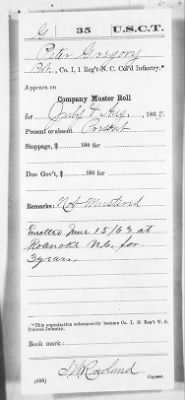 G | 35 | U.S.C.T.
Peter Gregory
Pvt, Co. I, 1 Reg't N. C. Col'd Infantry.*
Appears on
Company Muster Roll
for July & Aug, 1863.
Present or absent Present
Stoppage, $ 100 for
Due Gov't, $ 100 for
Remarks: Not Mustered
Enrolled June 15/63 at
Roanoke N.C. for
3 years.
*This organization subsequently became Co. I, 35 Reg't U. S.
Colored Infantry.
Book mark:
(358)
Copyist.